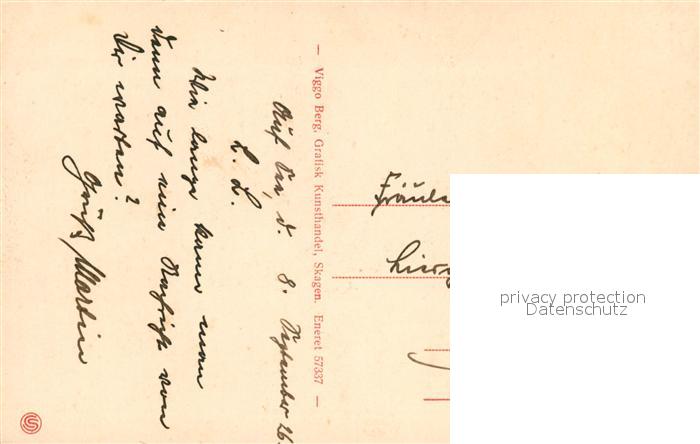 Auf See, d. 8. September 26.
L. L.
Wie lange kann man
denn auf eine Nachricht von
Dir warten?
Gruß, Martin
— Viggo Berg, Grafisk Kunsthandel, Skagen. Eneret 57337 —
privacy protection
Datenschutz